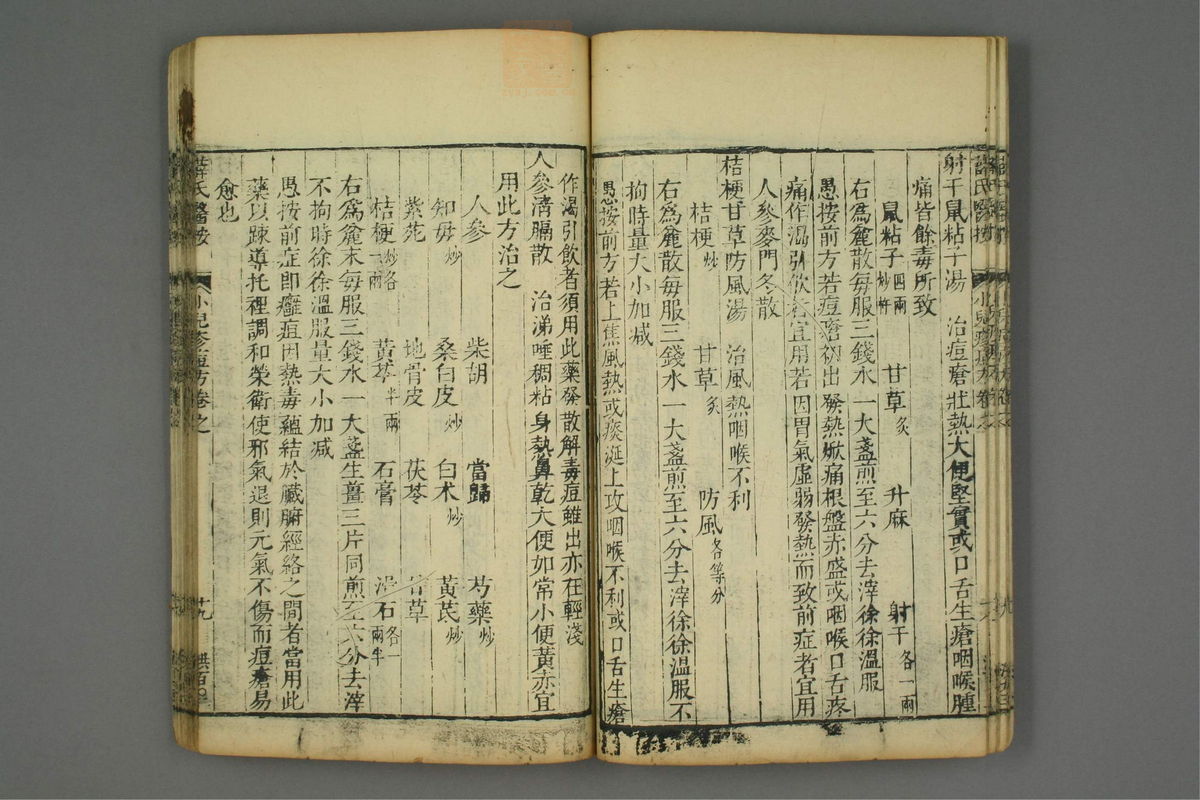 射干鼠粘子湯　治痘瘡壯熱大便堅實或口舌生瘡咽喉腫
痛皆餘毒所致
鼠粘子四兩炒杵　甘草炙　升麻　射干各一兩
右爲麄散每服三錢水一大盞煎至六分去滓徐徐溫服
愚按前方若痘瘡初出發熱焮痛根盤赤盛或咽喉口舌疼
痛作渴引飲者宜用若因胃氣虛弱發熱而致前症者宜用
人參麥門冬散
桔梗甘草防風湯　治風熱咽喉不利
桔梗炒　甘草炙　防風各等分
右爲麄散每服三錢水一大盞煎至六分去滓徐徐溫服不
拘時量大小加减
愚按前方若上焦風熱或痰涎上攻咽喉不利或口舌生瘡
作渴引飲者須用此藥發散解毒痘雖出亦在輕淺
人參清膈散　治涕唾稠粘身熱鼻乾大便如常小便黃赤宜
用此方治之
人參　柴胡　當歸　芍藥炒
知母炒　桑白皮炒　白术炒　黃芪炒
紫菀　地骨皮　茯苓　甘草
桔梗炒各一兩　黃芩半兩　石膏　滑石各一兩半
右爲麄末每服三錢水一大盞生薑三片同煎至六分去滓
不拘時徐徐溫服量大小加减
愚按前症即癰痘因熱毒蘊結於臟腑經絡之間者當用此
藥以踈導托裡調和榮衛使邪氣退則元氣不傷而痘瘡易
愈也
薛氏醫按　小兒疹痘方卷之　十九